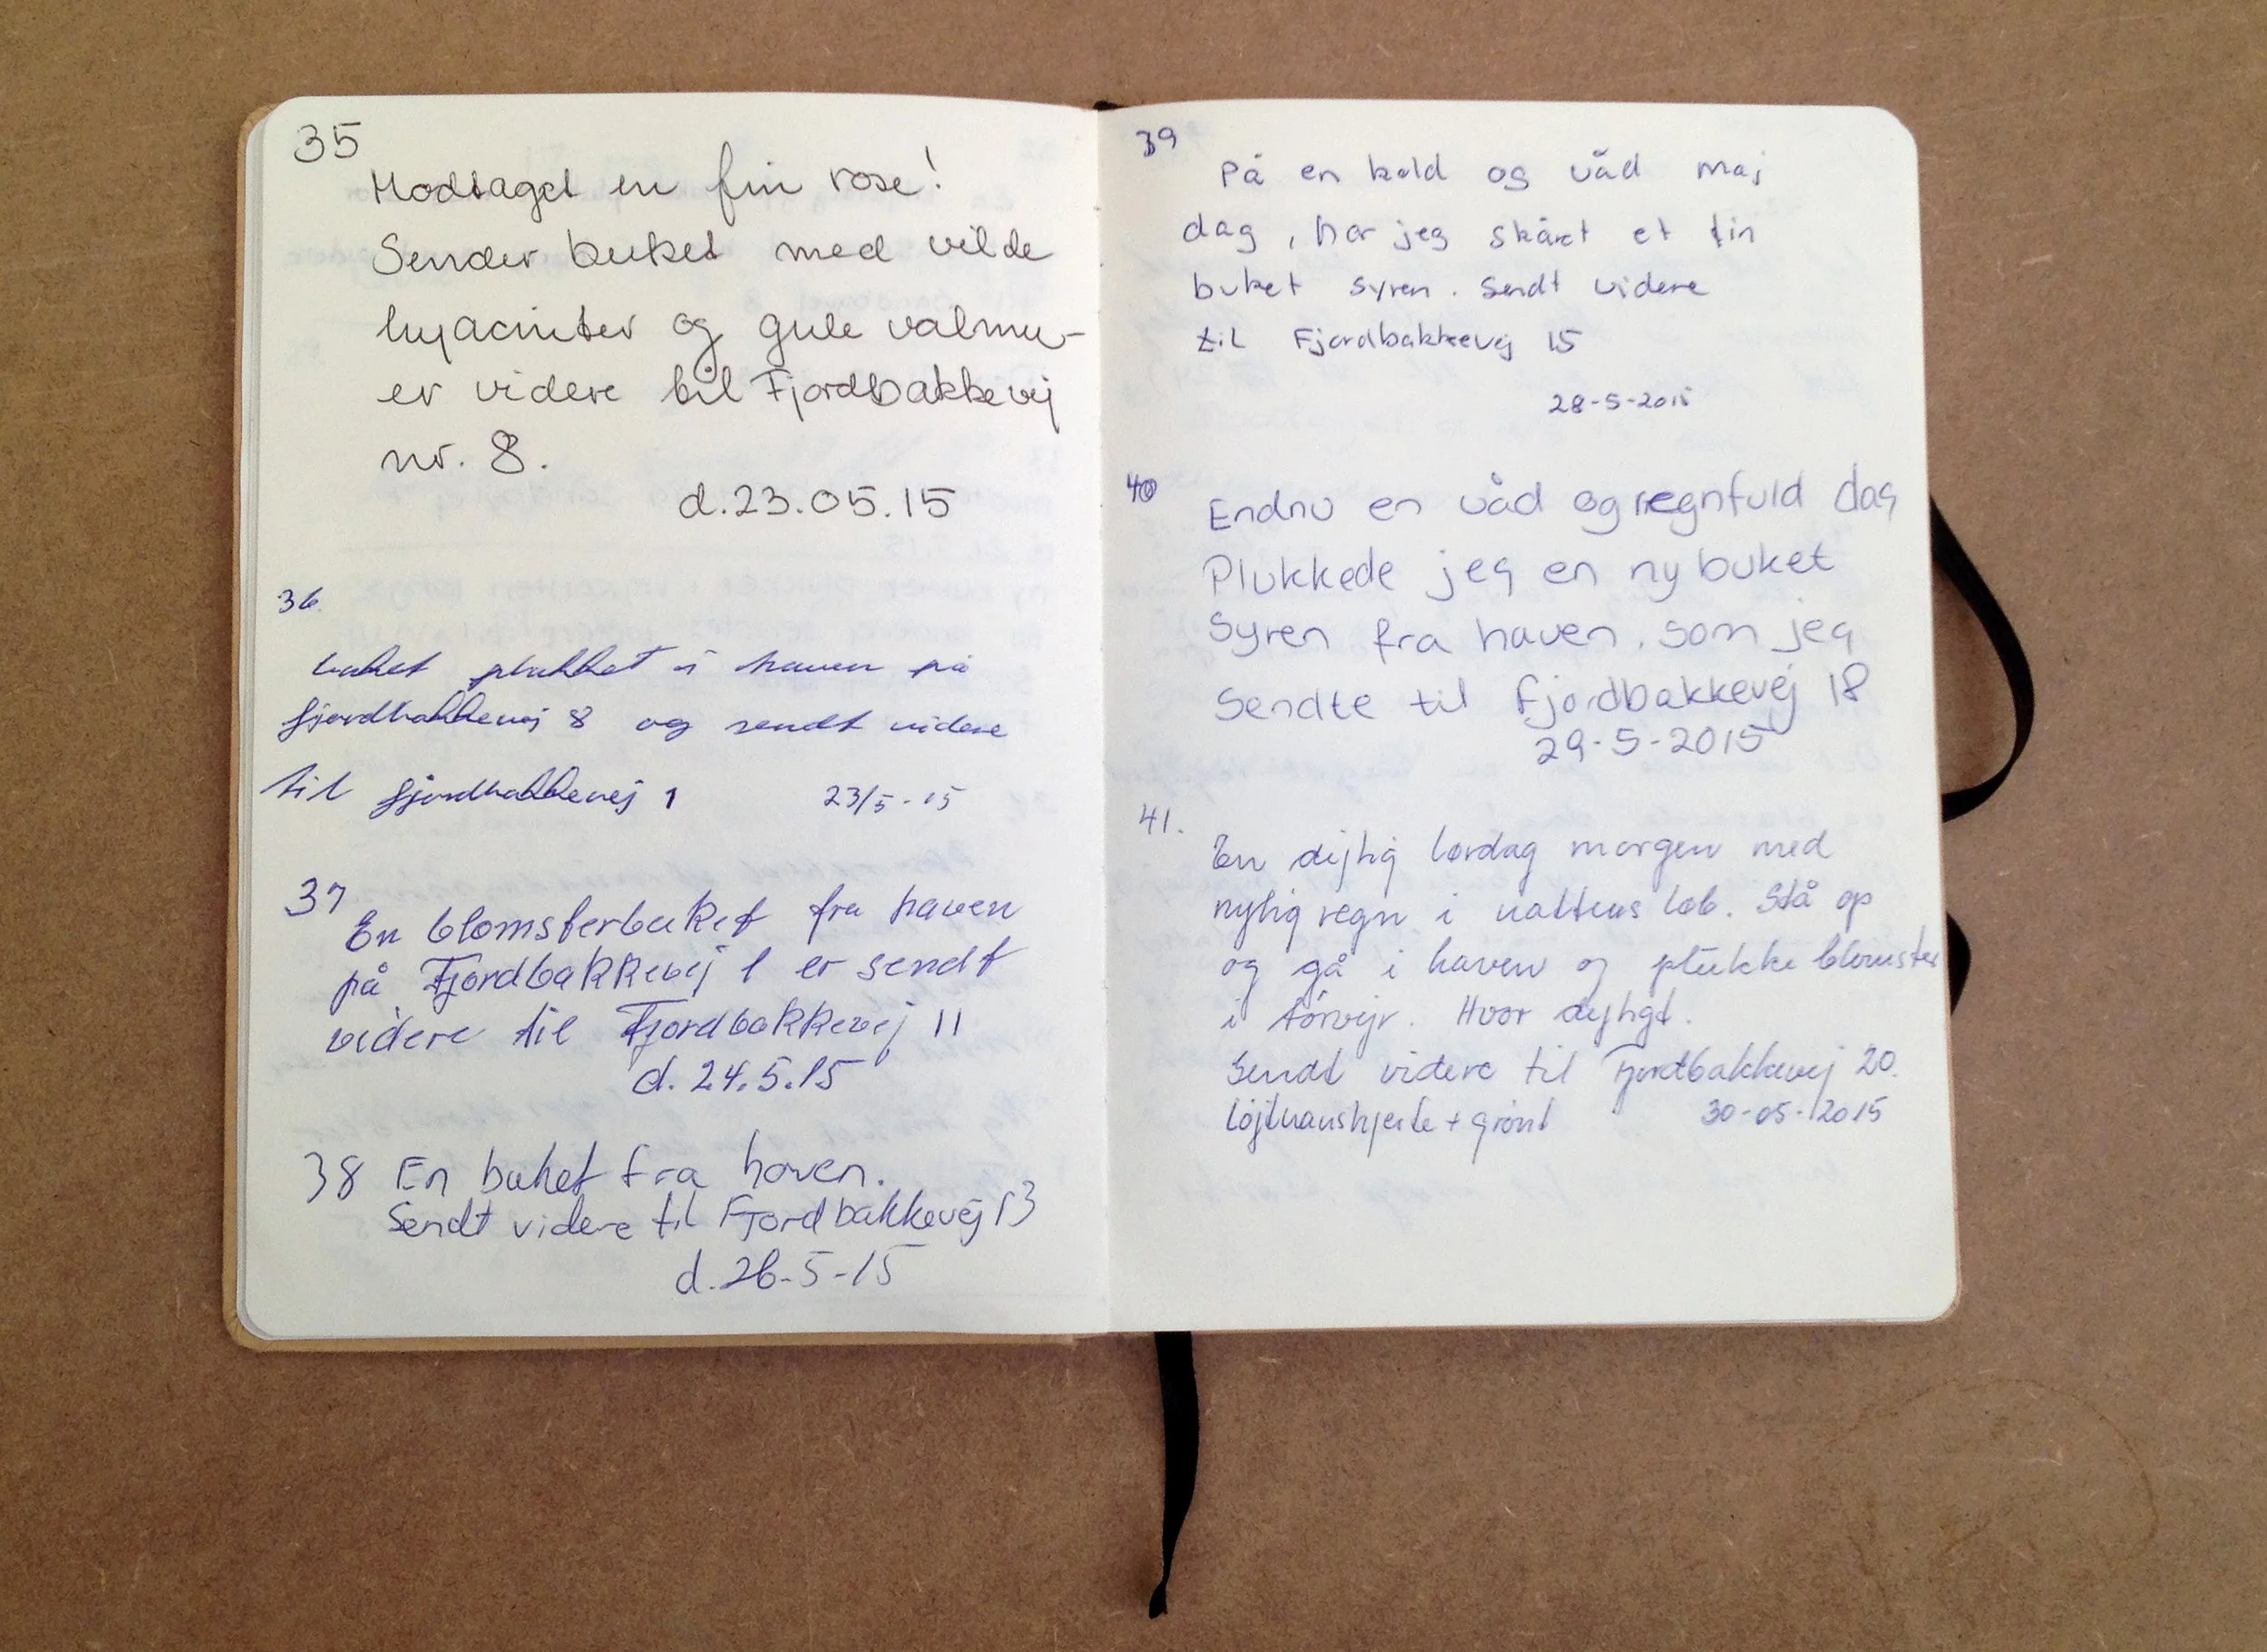 35
Modtaget en fin rose!
Sender buket med vilde
hyacinter og gule valmu-
er videre til Fjordbakkevej
nr. 8.
d.23.05.15
36.
buket plukket i haven på
fjordbakkevej 8 og sendt videre
til fjordbakkevej 1 23/5-15
37
En blomsterbuket fra haven
på Fjordbakkevej 1 er sendt
videre til Fjordbakkevej 11
d. 24.5.15
38 En buket fra haven.
Sendt videre til Fjordbakkevej 13
d.26-5-15
39
På en kold og våd maj
dag, har jeg skåret et fin
buket syren. Sendt videre
til Fjordbakkevej 15
28-5-2015
40
Endnu en våd og regnfuld dag
Plukkede jeg en ny buket
Syren fra haven, som jeg
Sendte til Fjordbakkevej 18
29-5-2015
41.
En dejlig lørdag morgen med
nylig regn i nattens løb. Stå op
og gå i haven og plukke blomster
i tørvejr. Hvor dejligt.
Sendt videre til Fjordbakkevej 20.
Løjtnanshjerte + grønt 30-05-2015